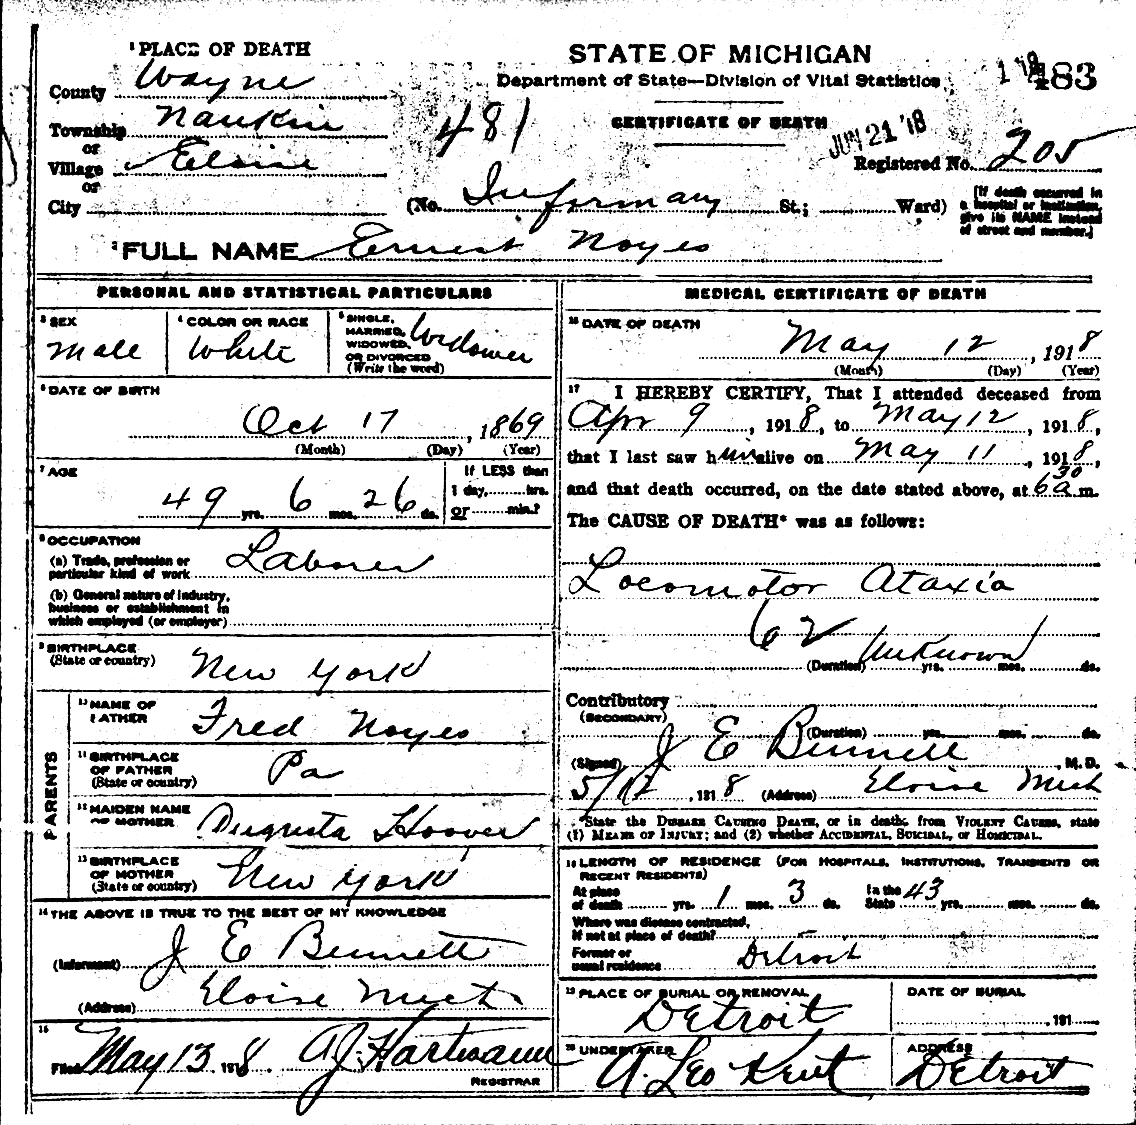 ¹PLACE OF DEATH
County Wayne
Township Nankin
or
Village Eloise
or
City
STATE OF MICHIGAN
Department of State—Division of Vital Statistics
483
481
CERTIFICATE OF DEATH
JUN 21 '18
Registered No. 205
(No. Infirmary St.; Ward)
[If death occurred in
a hospital or institution,
give its NAME instead
of street and number.]
²FULL NAME Ernest Noyes
PERSONAL AND STATISTICAL PARTICULARS
³ SEX
Male
⁴ COLOR OR RACE
White
⁵ SINGLE,
MARRIED,
WIDOWED,
OR DIVORCED
(Write the word)
Widower
⁶ DATE OF BIRTH
Oct 17, 1869
(Month) (Day) (Year)
⁷ AGE
49 yrs. 6 mos. 26 ds.
If LESS than
1 day, hrs.
or min.?
⁸ OCCUPATION
(a) Trade, profession or
particular kind of work Laborer
(b) General nature of industry,
business or establishment in
which employed (or employer)
⁹ BIRTHPLACE
(State or country) New York
PARENTS
¹⁰ NAME OF
FATHER Fred Noyes
¹¹ BIRTHPLACE
OF FATHER
(State or country) Pa
¹² MAIDEN NAME
OF MOTHER Augusta Hoover
¹³ BIRTHPLACE
OF MOTHER
(State or country) New York
¹⁴ THE ABOVE IS TRUE TO THE BEST OF MY KNOWLEDGE
(Informant) J E Bennett
(Address) Eloise Mich
¹⁵
Filed May 13 1918. A J Hartmann
REGISTRAR
MEDICAL CERTIFICATE OF DEATH
¹⁶ DATE OF DEATH
May 12, 1918
(Month) (Day) (Year)
¹⁷ I HEREBY CERTIFY, That I attended deceased from
Apr 9, 1918, to May 12 1918,
that I last saw him alive on May 11, 1918,
and that death occurred, on the date stated above, at 6 30 a m.
The CAUSE OF DEATH* was as follows:
Locomotor Ataxia
62
(Duration) Unknown yrs. mos. ds.
Contributory
(SECONDARY)
(Duration) yrs. mos. ds.
(Signed) J E Bennett, M. D.
5/12, 1918 (Address) Eloise Mich
* State the DISEASE CAUSING DEATH, or in deaths from VIOLENT CAUSES, state
(1) MEANS OF INJURY; and (2) whether ACCIDENTAL, SUICIDAL, OR HOMICIDAL.
¹⁸ LENGTH OF RESIDENCE (FOR HOSPITALS, INSTITUTIONS, TRANSIENTS OR
RECENT RESIDENTS)
At place
of death yrs. 1 mos. 3 ds. In the
State 43 yrs. mos. ds.
Where was disease contracted,
If not at place of death?
Former or
usual residence Detroit
¹⁹ PLACE OF BURIAL OR REMOVAL
Detroit
DATE OF BURIAL
, 191
²⁰ UNDERTAKER
A. Leo Kent
ADDRESS
Detroit